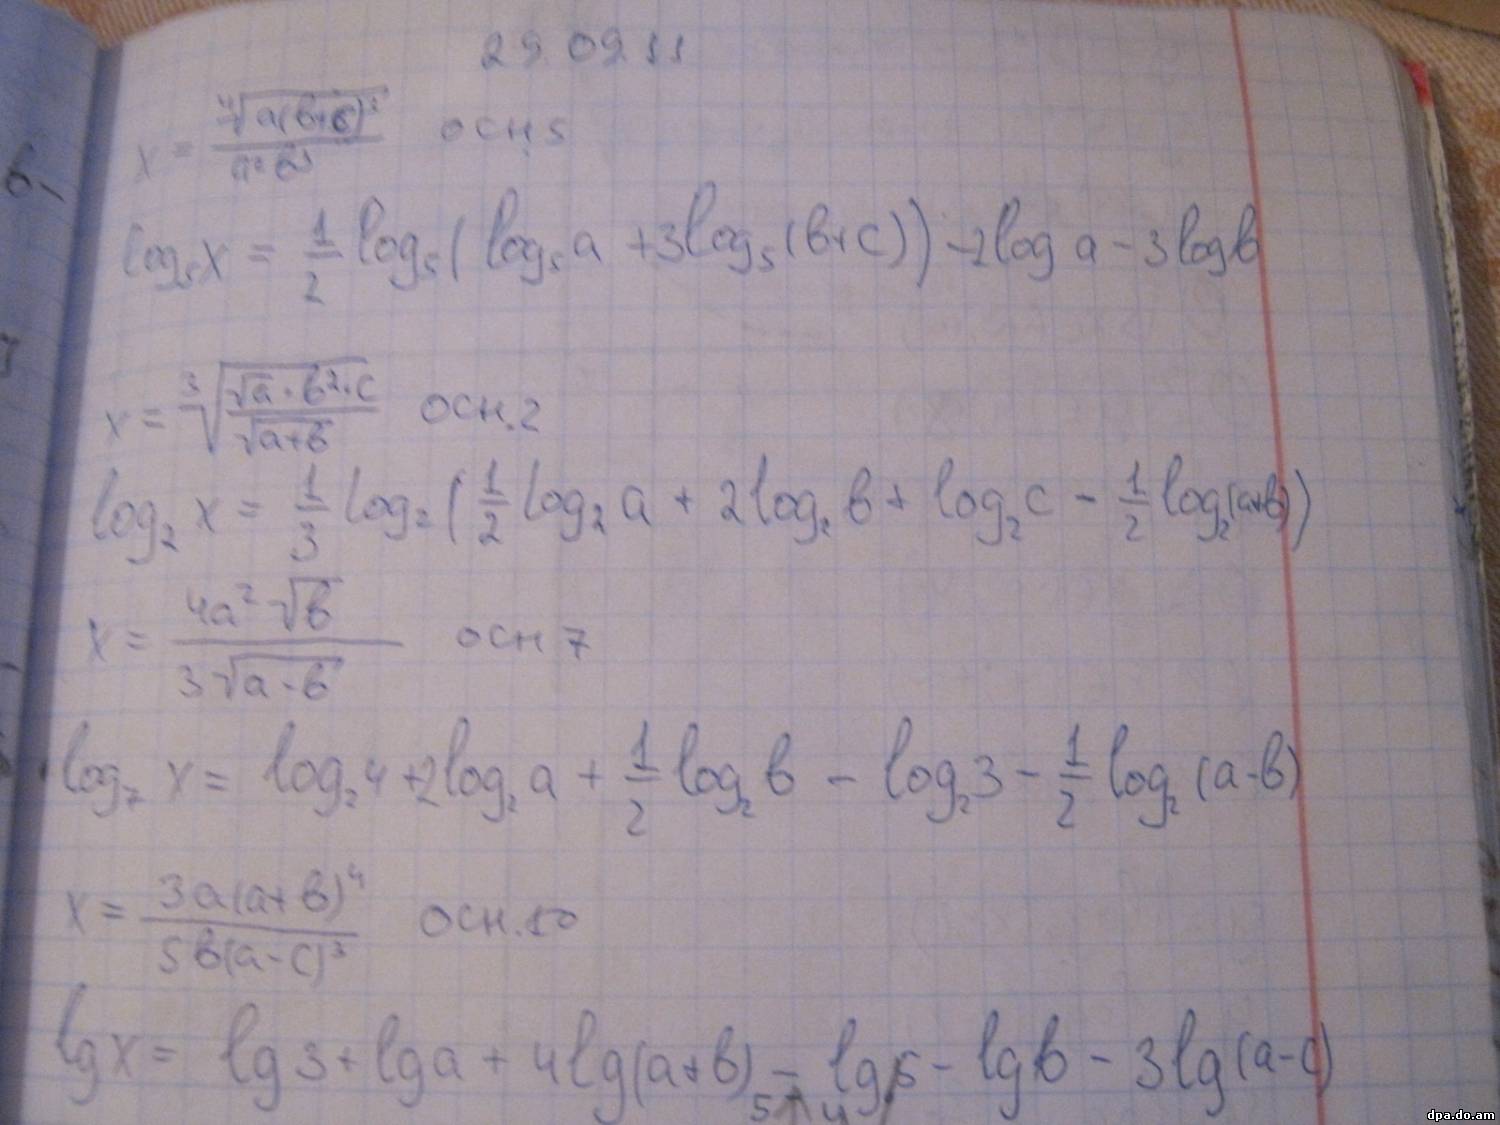 29 09 11
x = ∜(a(в+c)³) / a² в³ осн 5
log₅x = 1/2 log₅( log₅a + 3log₅(в+c)) - 2log a - 3logв
x = ∛(√a · в² · c / √(a+в)) осн.2
log₂ x = 1/3 log₂(1/2 log₂a + 2log₂в + log₂c - 1/2 log₂(a+в))
x = 4a² √в / 3√(a-в) осн 7
log₇ x = log₂4 + 2log₂a + 1/2 log₂в - log₂3 - 1/2 log₂(a-в)
x = 3a(a+в)⁴ / 5в(a-c)³ осн.10
lgx = lg3 + lga + 4lg(a+в) - lg5 - lgв - 3lg(a-c)
dpa.do.am